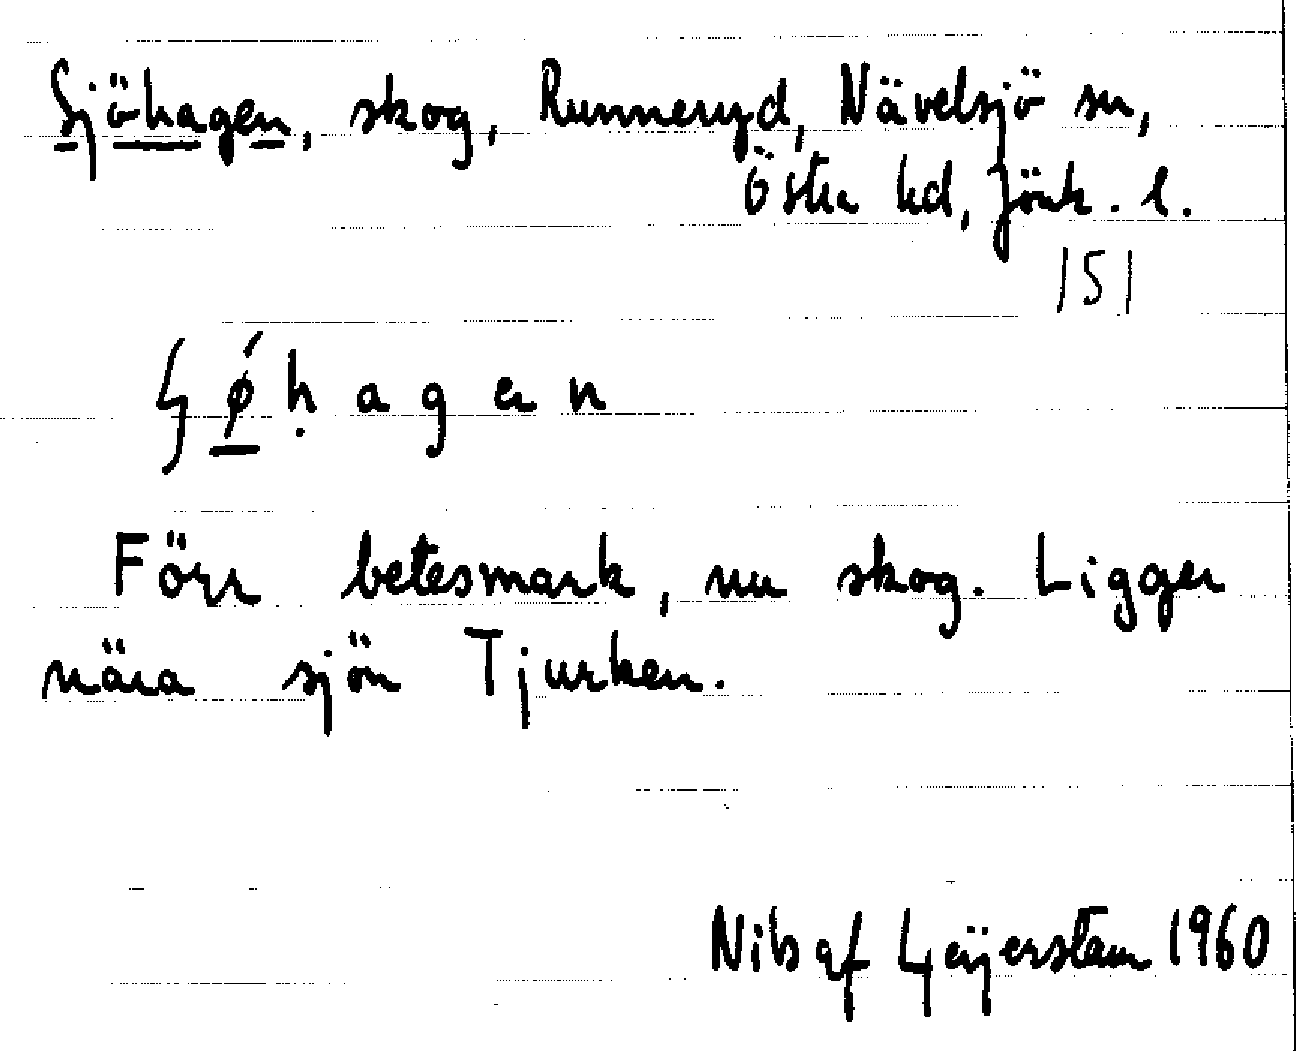 Sjöhagen, skog, Runneryd, Nävelsjö sn,
Östra hd, Jönk. l.
151
h a g e n
Förr betesmark, nu skog. Ligger
nära sjön Tjurken.
Nils af Geijerstam 1960